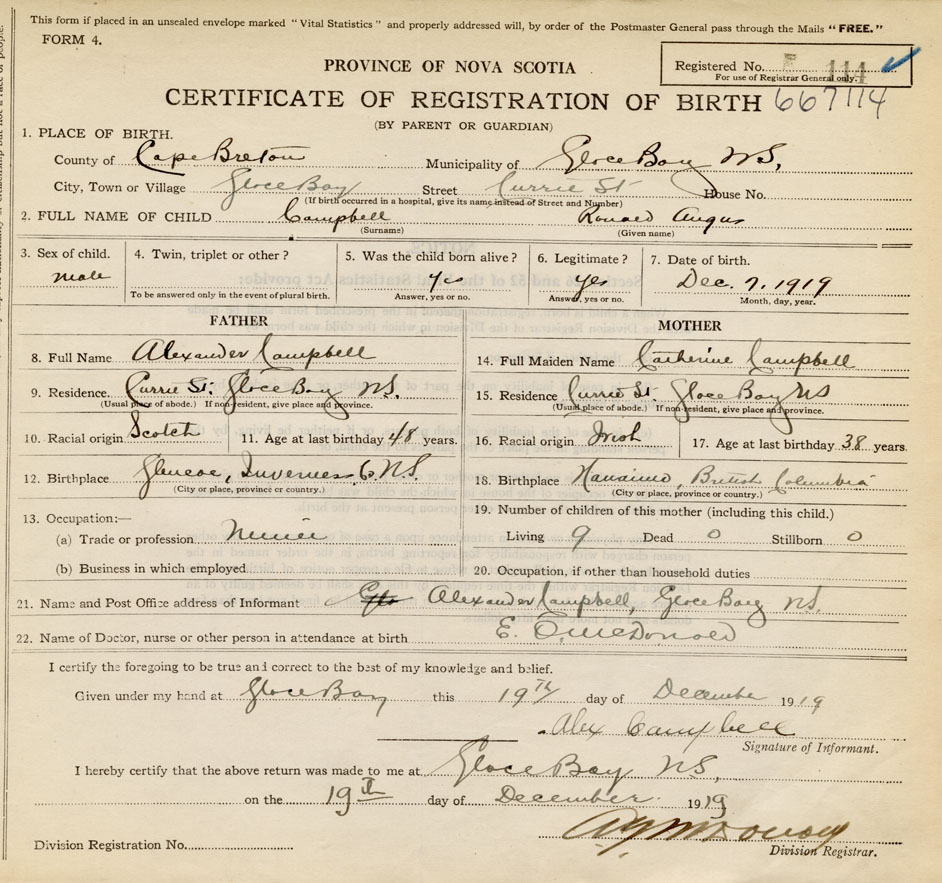 This form if placed in an unsealed envelope marked "Vital Statistics" and properly addressed will, by order of the Postmaster General pass through the Mails "FREE."
FORM 4.
Registered No. 114
For use of Registrar General only.
PROVINCE OF NOVA SCOTIA
CERTIFICATE OF REGISTRATION OF BIRTH 667114
(BY PARENT OR GUARDIAN)
1. PLACE OF BIRTH.
County of Cape Breton Municipality of Glace Bay NS,
City, Town or Village Glace Bay Street Currie St House No.
(If birth occurred in a hospital, give its name instead of Street and Number)
2. FULL NAME OF CHILD Campbell Ronald Angus
(Surname) (Given name)
3. Sex of child. 4. Twin, triplet or other? 5. Was the child born alive? 6. Legitimate? 7. Date of birth.
male yes yes Dec. 7, 1919
To be answered only in the event of plural birth. Answer, yes or no. Answer, yes or no. Month, day, year.
FATHER
8. Full Name Alexander Campbell
9. Residence. Currie St. Glace Bay NS.
(Usual place of abode.) If non-resident, give place and province.
10. Racial origin Scotch 11. Age at last birthday 48 years.
12. Birthplace Glencoe, Inverness Co NS.
(City or place, province or country.)
13. Occupation:—
(a) Trade or profession Miner
(b) Business in which employed
MOTHER
14. Full Maiden Name Catherine Campbell
15. Residence Currie St. Glace Bay NS
(Usual place of abode.) If non-resident, give place and province.
16. Racial origin Irish 17. Age at last birthday 38 years.
18. Birthplace Nanaimo, British Columbia
(City or place, province or country.)
19. Number of children of this mother (including this child.)
Living 9 Dead 0 Stillborn 0
20. Occupation, if other than household duties
21. Name and Post Office address of Informant Alexander Campbell, Glace Bay NS.
22. Name of Doctor, nurse or other person in attendance at birth E. O. McDonald
I certify the foregoing to be true and correct to the best of my knowledge and belief.
Given under my hand at Glace Bay this 19th day of December 1919
Alex Campbell
Signature of Informant.
I hereby certify that the above return was made to me at Glace Bay NS,
on the 19th day of December 1919
Division Registration No.
Division Registrar.